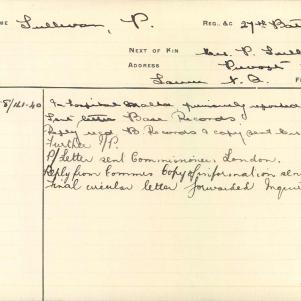 ME Sullivan, P. REG., &C 27th Bat
NEXT OF KIN Mrs. P. Sulli
ADDRESS
5/161.40 In hospital Malta previously reported
Sent letter Base Records
Reply recd B. Records & copy sent
Further I/P.
P/Letter sent Commissioner, London.
Reply from Commis Copy of information sen
Final circular letter forwarded Inqui